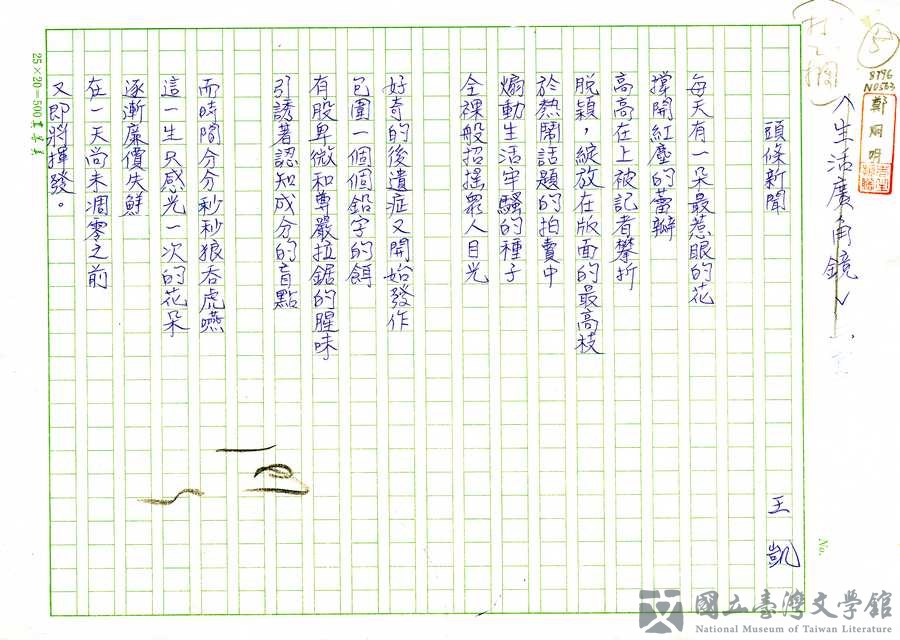 5
8896
N0563
鄭炯明
〈生活廣角鏡〉
頭條新聞
王凱
每天有一朵最惹眼的花
撐開紅塵的蕾瓣
高高在上被記者攀折
脫穎,綻放在版面的最高枝
於熱鬧話題的拍賣中
煽動生活牢騷的種子
全裸般招搖眾人目光
好奇的後遺症又開始發作
包圍一個個鉛字的餌
有股卑微和尊嚴拉鋸的腥味
引誘著認知成分的盲點
而時間分分秒秒狼吞虎嚥
這一生只感光一次的花朵
逐漸廉價失鮮
在一天尚未凋零之前
又即將揮發。
25×20=500
No.
國立臺灣文學館
National Museum of Taiwan Literature